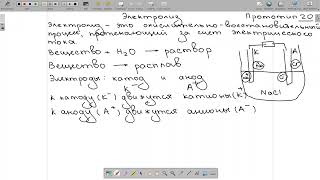 Электролиз Прототип 20
Электролиз - это окислительно-восстановительный
процесс, протекающий за счет электрического
тока.
Вещество + H2O → раствор
Вещество → расплав
Электроды: катод и анод
K⁻ A⁺
к катоду (K⁻) движутся катионы (K⁺)
к аноду (A⁺) движутся анионы (A⁻)
K A
NaCl